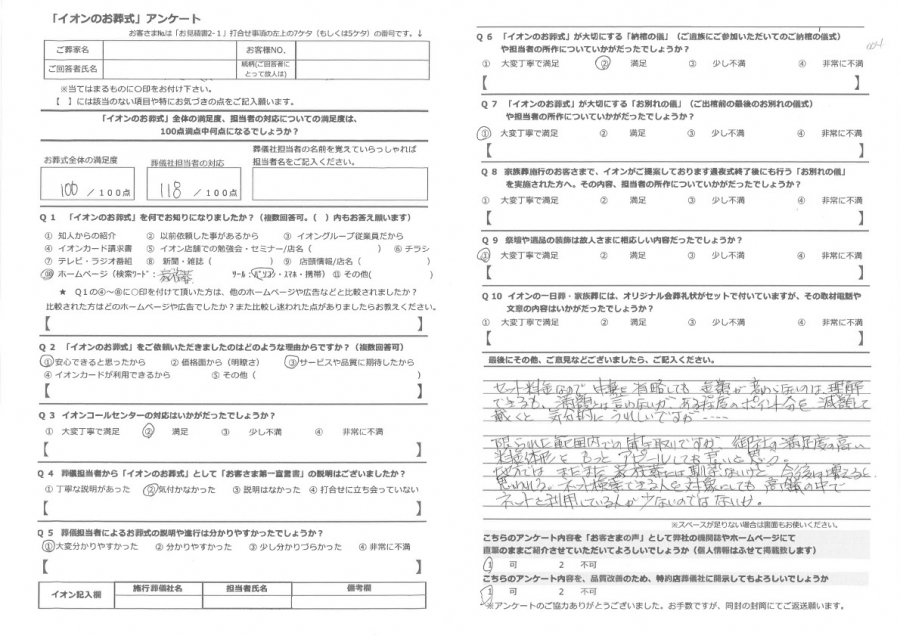 「イオンのお葬式」アンケート
お客さまNo.は「お見積書2-1」打合せ事項の左上の7ケタ（もしくは5ケタ）の番号です。↓
ご葬家名 お客様NO.
ご回答者氏名 続柄(ご回答者にとって故人は)
※当てはまるものに○印をお付け下さい。
【 】には該当のない項目や特にお気づきの点をご記入願います。
「イオンのお葬式」全体の満足度、担当者の対応についての満足度は、
100点満点中何点になるでしょうか？
葬儀社担当者の名前を覚えていらっしゃれば
担当者名をご記入ください。
お葬式全体の満足度 葬儀社担当者の対応
100 / 100点 118 / 100点
Q1 「イオンのお葬式」を何でお知りになりましたか？（複数回答可。（ ）内もお答え願います）
① 知人からの紹介 ② 以前依頼した事があるから ③ イオングループ従業員だから
④ イオンカード請求書 ⑤ イオン店舗での勉強会・セミナー/店名（ ） ⑥ チラシ
⑦ テレビ・ラジオ番組 ⑧ 新聞・雑誌（ ） ⑨ 店頭情報/店名（ ）
⑩ ホームページ（検索ワード：家族葬 ツール：パソコン・スマホ・携帯）⑪ その他( )
★ Q1の④～⑧に○印を付けて頂いた方は、他のホームページや広告などと比較されましたか？
比較された方はどのホームページや広告でしたか？また比較し迷われた点がありましたらお教えください。
【 】
Q2 「イオンのお葬式」をご依頼いただきましたのはどのような理由からですか？（複数回答可）
①安心できると思ったから ②価格面から（明瞭さ） ③サービスや品質に期待したから
④イオンカードが利用できるから ⑤その他（ ）
【 】
Q3 イオンコールセンターの対応はいかがだったでしょうか？
① 大変丁寧で満足 ② 満足 ③ 少し不満 ④ 非常に不満
【 】
Q4 葬儀担当者から「イオンのお葬式」として「お客さま第一宣言書」の説明はございましたか？
①丁寧な説明があった ②気付かなかった ③説明はなかった ④打合せに立ち会っていない
【 】
Q5 葬儀担当者によるお葬式の説明や進行は分かりやすかったでしょうか？
①大変分かりやすかった ②分かりやすかった ③少し分かりづらかった ④非常に不満
【 】
イオン記入欄 施行葬儀社名 担当者氏名 備考欄
Q6 「イオンのお葬式」が大切にする「納棺の儀」（ご遺族にご参加いただいてのご納棺の儀式）
や担当者の所作についていかがだったでしょうか？
① 大変丁寧で満足 ② 満足 ③ 少し不満 ④ 非常に不満
【 】
Q7 「イオンのお葬式」が大切にする「お別れの儀」（ご出棺前の最後のお別れの儀式）
や担当者の所作についていかがだったでしょうか？
① 大変丁寧で満足 ② 満足 ③ 少し不満 ④ 非常に不満
【 】
Q8 家族葬施行のお客さまで、イオンがご提案しております通夜式終了後にも行う「お別れの儀」
を実施された方へ。その内容、担当者の所作についていかがだったでしょうか？
① 大変丁寧で満足 ② 満足 ③ 少し不満 ④ 非常に不満
【 】
Q9 祭壇や遺品の装飾は故人さまに相応しい内容だったでしょうか？
① 大変丁寧で満足 ② 満足 ③ 少し不満 ④ 非常に不満
【 】
Q10 イオンの一日葬・家族葬には、オリジナル会葬礼状がセットで付いていますが、その取材電話や
文章の内容はいかがだったでしょうか？
① 大変丁寧で満足 ② 満足 ③ 少し不満 ④ 非常に不満
【 】
最後にその他、ご意見などございましたら、ご記入ください。
セット料金なので 何かを省略しても 金額が変わらないのは理解
できるも、満額とは言わないが、ある程度のポイント分を減額して
戴くと 気分的にうれしいですが‥‥
限られた範囲内での 満足の高い
もっとアピールしても良いと思う。
地方では まだまだ 家族葬には馴染ないけど 今後は増えると
思われる。ネット検索できる人を対象にしても 高齢の中で
ネットを利用している人が少ないのではないか。
※スペースが足りない場合は裏面もお使いください。
こちらのアンケート内容を「お客さまの声」として弊社の機関誌やホームページにて
直筆のままご紹介させていただいてよろしいでしょうか（個人情報はふせて掲載致します）
1 可 2 不可
こちらのアンケート内容を、品質改善のため、特約店葬儀社に開示してもよろしいでしょうか
1 可 2 不可
※アンケートのご協力ありがとうございました。お手数ですが、同封の封筒にてご返送願います。